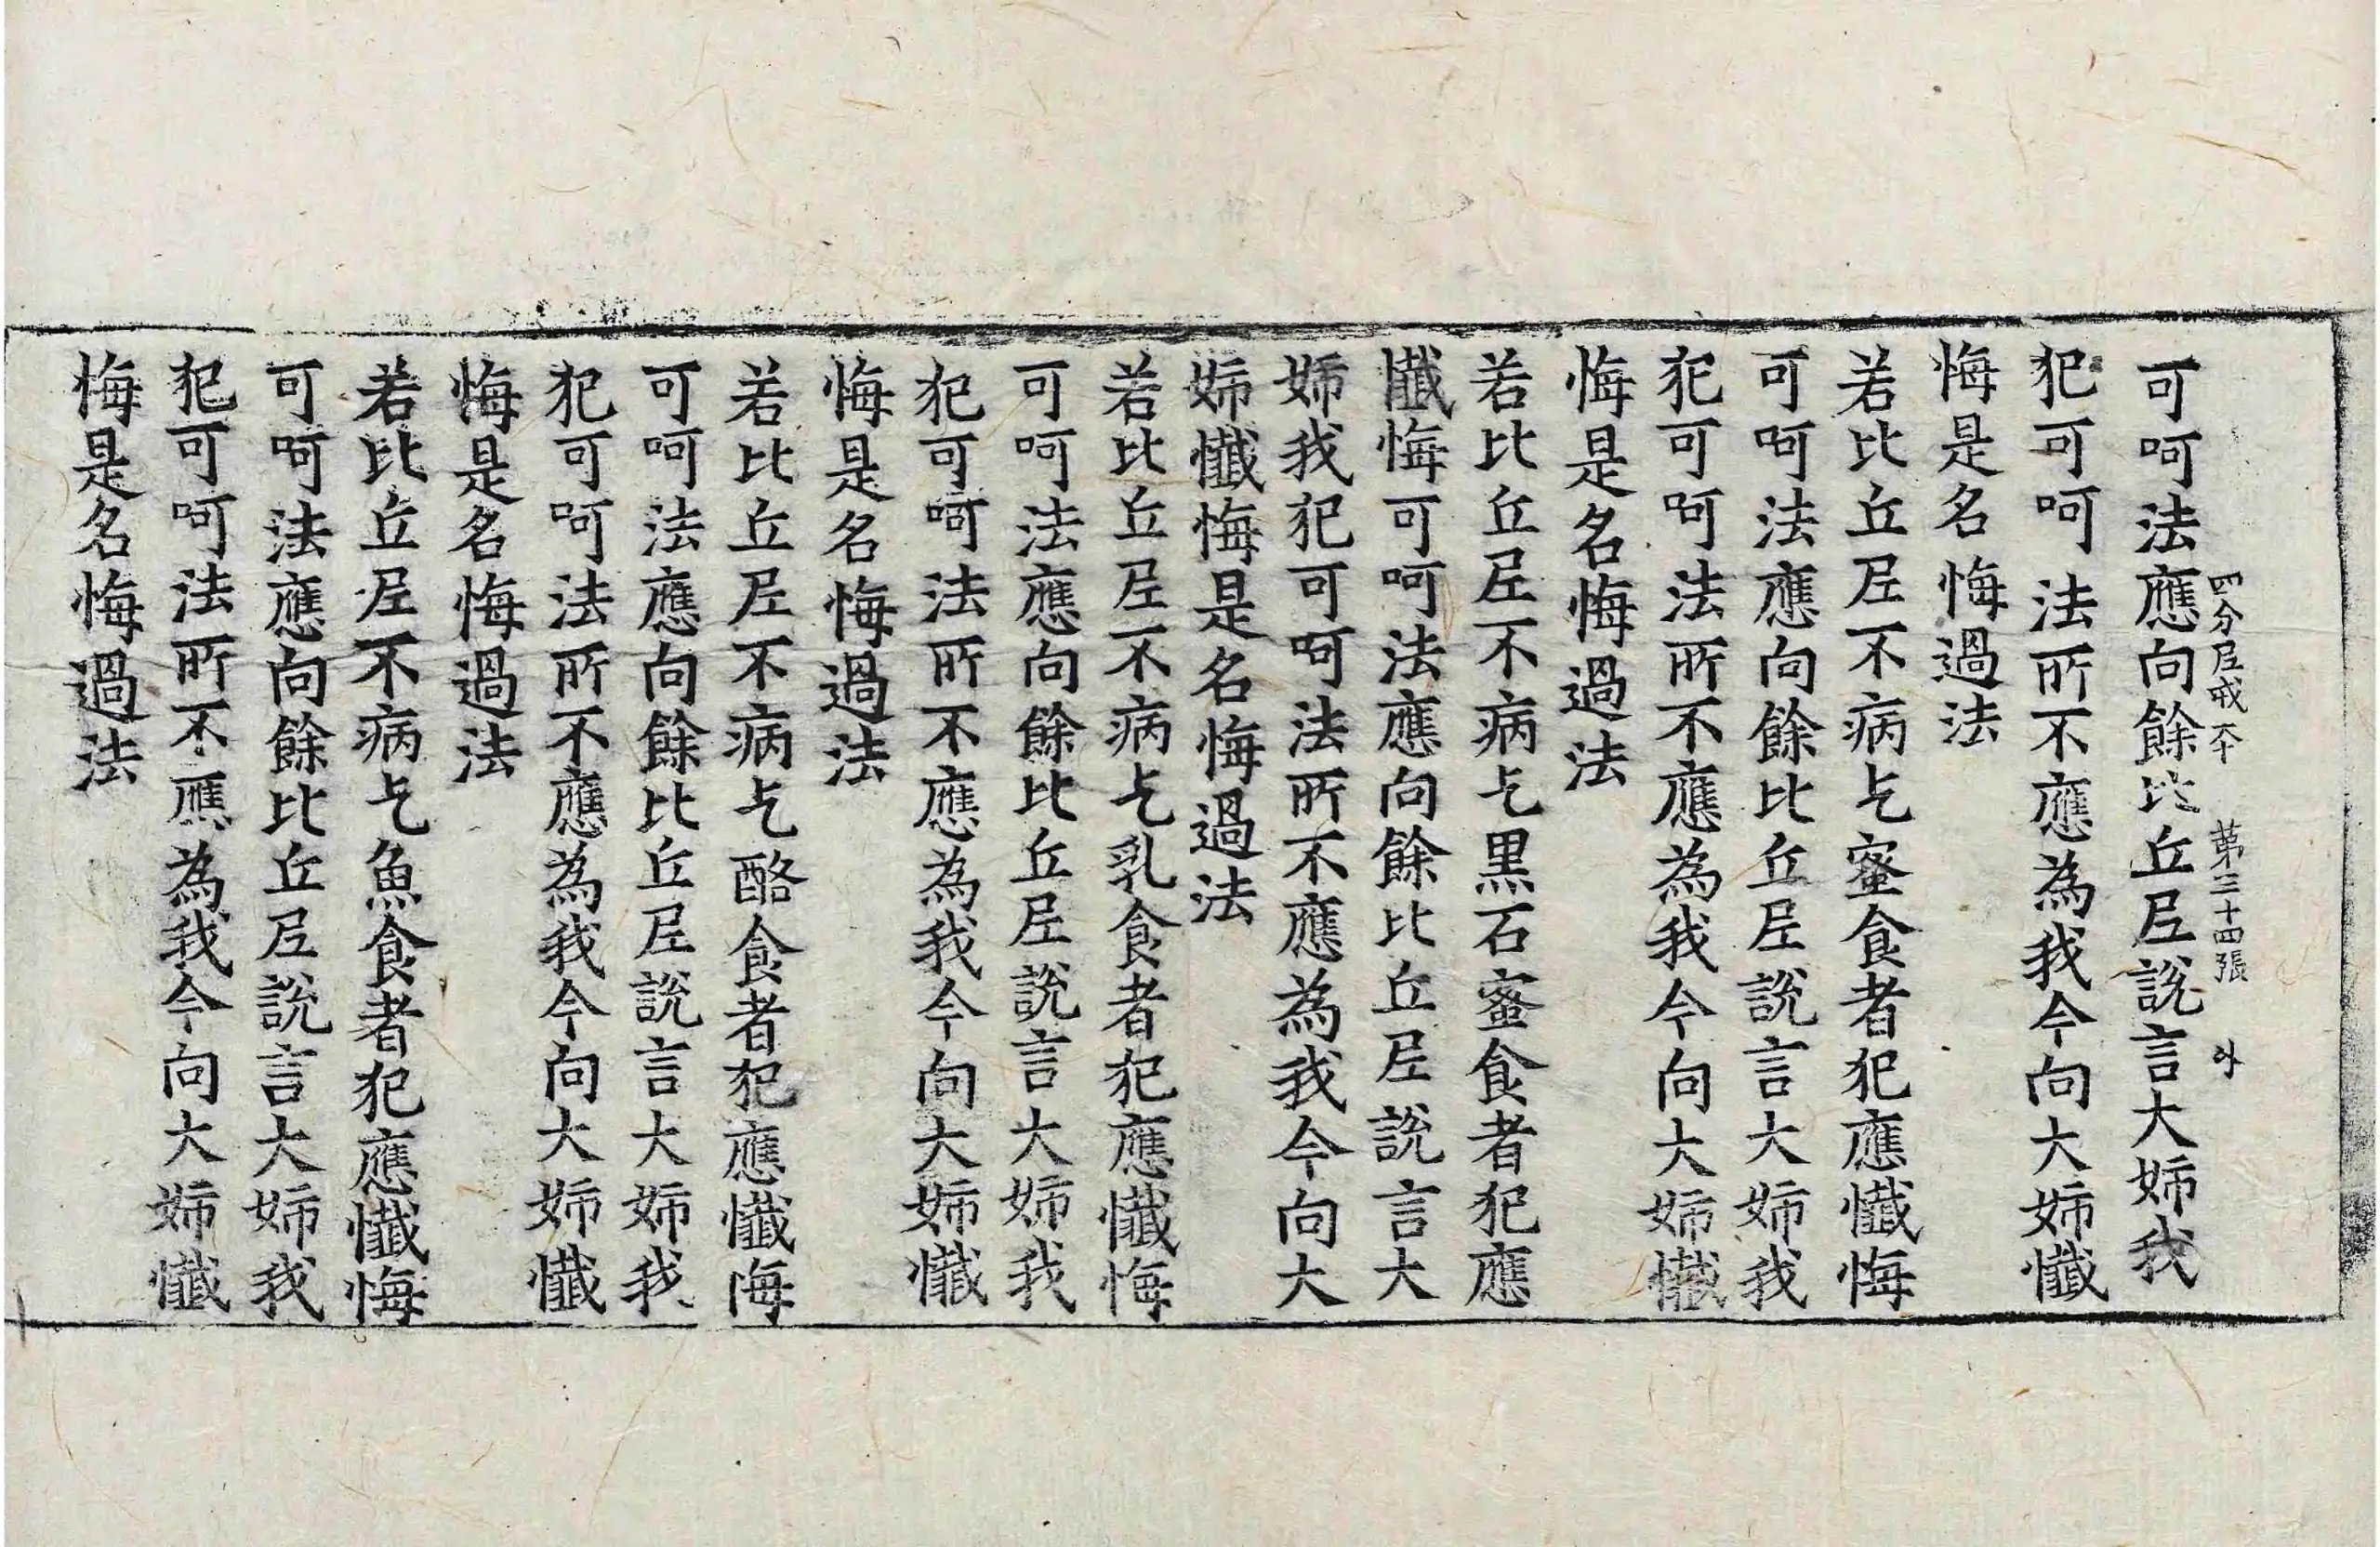 四分尼戒夲 第三十四張 外
可呵法應向餘比丘尼說言大姉我
犯可呵法所不應為我今向大姉懺
悔是名悔過法
若比丘尼不病乞蜜食者犯應懺悔
可呵法應向餘比丘尼說言大姉我
犯可呵法所不應為我今向大姉懺
悔是名悔過法
若比丘尼不病乞黑石蜜食者犯應
懺悔可呵法應向餘比丘尼說言大
姉我犯可呵法所不應為我今向大
姉懺悔是名悔過法
若比丘尼不病乞乳食者犯應懺悔
可呵法應向餘比丘尼說言大姉我
犯可呵法所不應為我今向大姉懺
悔是名悔過法
若比丘尼不病乞酪食者犯應懺悔
可呵法應向餘比丘尼說言大姉我
犯可呵法所不應為我今向大姉懺
悔是名悔過法
若比丘尼不病乞魚食者犯應懺悔
可呵法應向餘比丘尼說言大姉我
犯可呵法所不應為我今向大姉懺
悔是名悔過法